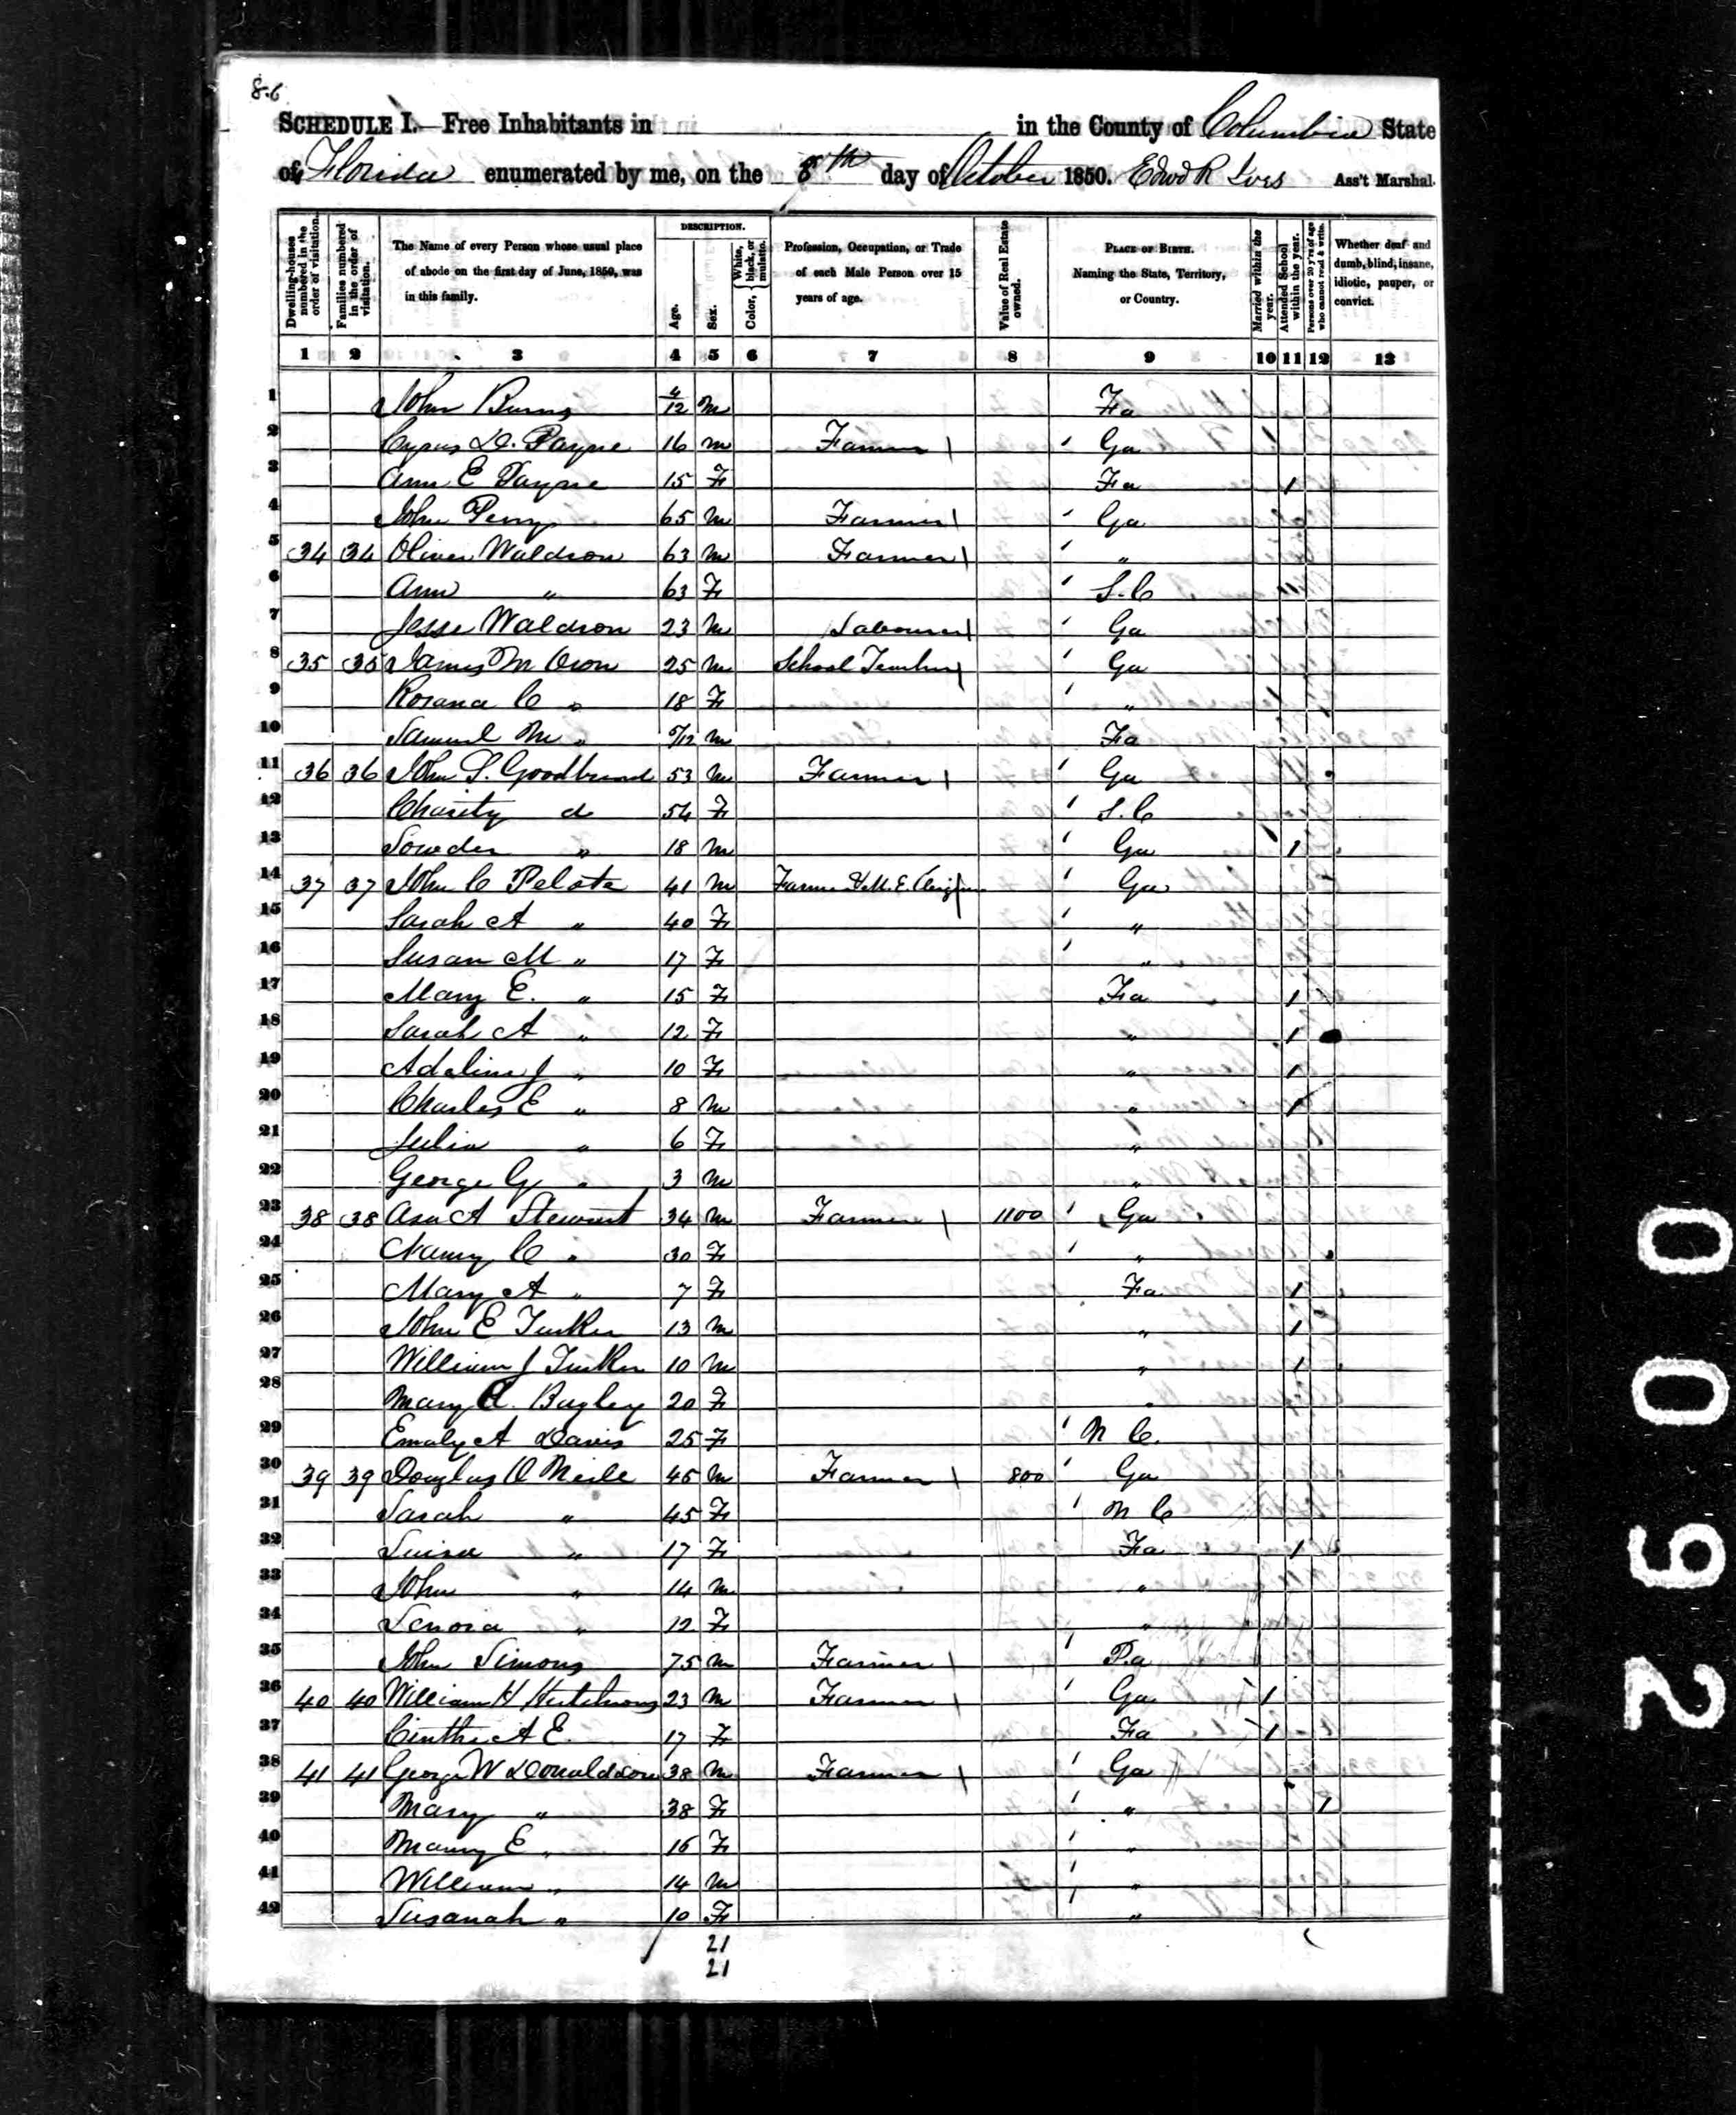 8.6
SCHEDULE I.—Free Inhabitants in in the County of Columbia State
of Florida enumerated by me, on the 8th day of October 1850. Edwd R Ives Ass't Marshal.
Dwelling-houses numbered in the order of visitation. Families numbered in the order of visitation. The Name of every Person whose usual place of abode on the first day of June, 1850, was in this family. DESCRIPTION. Age. Sex. Color, { White, black, or mulatto. Profession, Occupation, or Trade of each Male Person over 15 years of age. Value of Real Estate owned. PLACE OF BIRTH. Naming the State, Territory, or Country. Married within the year. Attended School within the year. Persons over 20 y'rs of age who cannot read & write. Whether deaf and dumb, blind, insane, idiotic, pauper, or convict.
1 2 3 4 5 6 7 8 9 10 11 12 13
1 John Burns 4/12 m Fa
2 Cyrus D. Payne 16 m Farmer Ga
3 Ann E Payne 15 F Fa 1
4 John Perry 65 m Farmer Ga
5 34 34 Oliver Waldron 63 m Farmer "
6 Ann " 63 F S.C
7 Jesse Waldron 23 m Labourer Ga
8 35 35 James M 25 m School Teacher Ga
9 Rosana C " 18 F "
10 Samuel M " m Fa
11 36 36 John S. Goodbread 53 m Farmer Ga
12 Charity do 54 F S.C
13 " 18 m Ga 1
14 37 37 John C Pelote 41 m Farmer & M.E. Ga
15 Sarah A " 40 F "
16 Susan M " 17 F "
17 Mary E. " 15 F Fa 1
18 Sarah A " 12 F " 1
19 Adeline J " 10 F " 1
20 Charles E " 8 m " 1
21 Julia " 6 F "
22 George G " 3 m "
23 38 38 Asa A Stewart 34 m Farmer 1100 Ga
24 Nancy C " 30 F "
25 Mary A " 7 F Fa 1
26 John E Tucker 13 m " 1
27 William J Tucker 10 m " 1
28 Mary A. Bagley 20 F "
29 Emaly A Davis 25 F N C.
30 39 39 Douglas O Neile 45 m Farmer 800 Ga
31 Sarah " 45 F N C
32 Luisa " 17 F Fa 1
33 John " 14 m "
34 Lenora " 12 F "
35 John Simons 75 m Farmer Pa
36 40 40 William H Hutchons 23 m Farmer Ga 1
37 Cinthi A E. 17 F Fa 1
38 41 41 George W Donaldson 38 m Farmer Ga
39 Mary " 38 F " 1
40 E " 16 F "
41 William " 14 m "
42 Susanah " 10 F "
21
21
0092